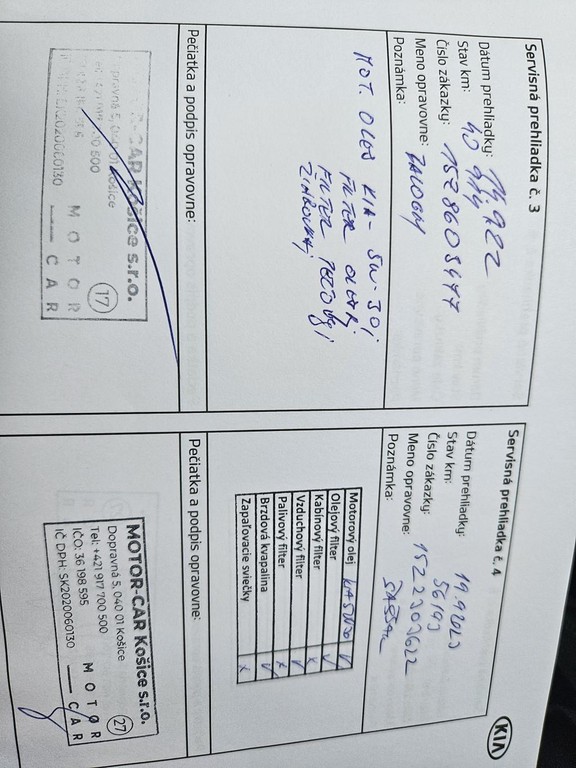 Servisná prehliadka č. 3
Dátum prehliadky:
Stav km:
Číslo zákazky:
Meno opravovne:
Poznámka:
MOT. OLEJ KIA - 5W-30
FILTER OLEJ
FILTER
Pečiatka a podpis opravovne:
-CAR Košice s.r.o.
pravná 5, 040 01 Košice
2020060130
17
MOTOR
CAR
KIA
Servisná prehliadka č. 4
Dátum prehliadky: 19.9.2023
Stav km: 56193
Číslo zákazky:
Meno opravovne:
Poznámka:
Motorový olej KIA 5W30 ✓
Olejový filter ✓
Kabínový filter x
Vzduchový filter ✓
Palivový filter x
Brzdová kvapalina ✓
Zapaľovacie sviečky x
Pečiatka a podpis opravovne:
MOTOR-CAR Košice s.r.o.
Dopravná 5, 040 01 Košice
Tel: +421 917 700 500
IČO: 36 198 595
IČ DPH: SK2020060130
27
MOTOR
CAR